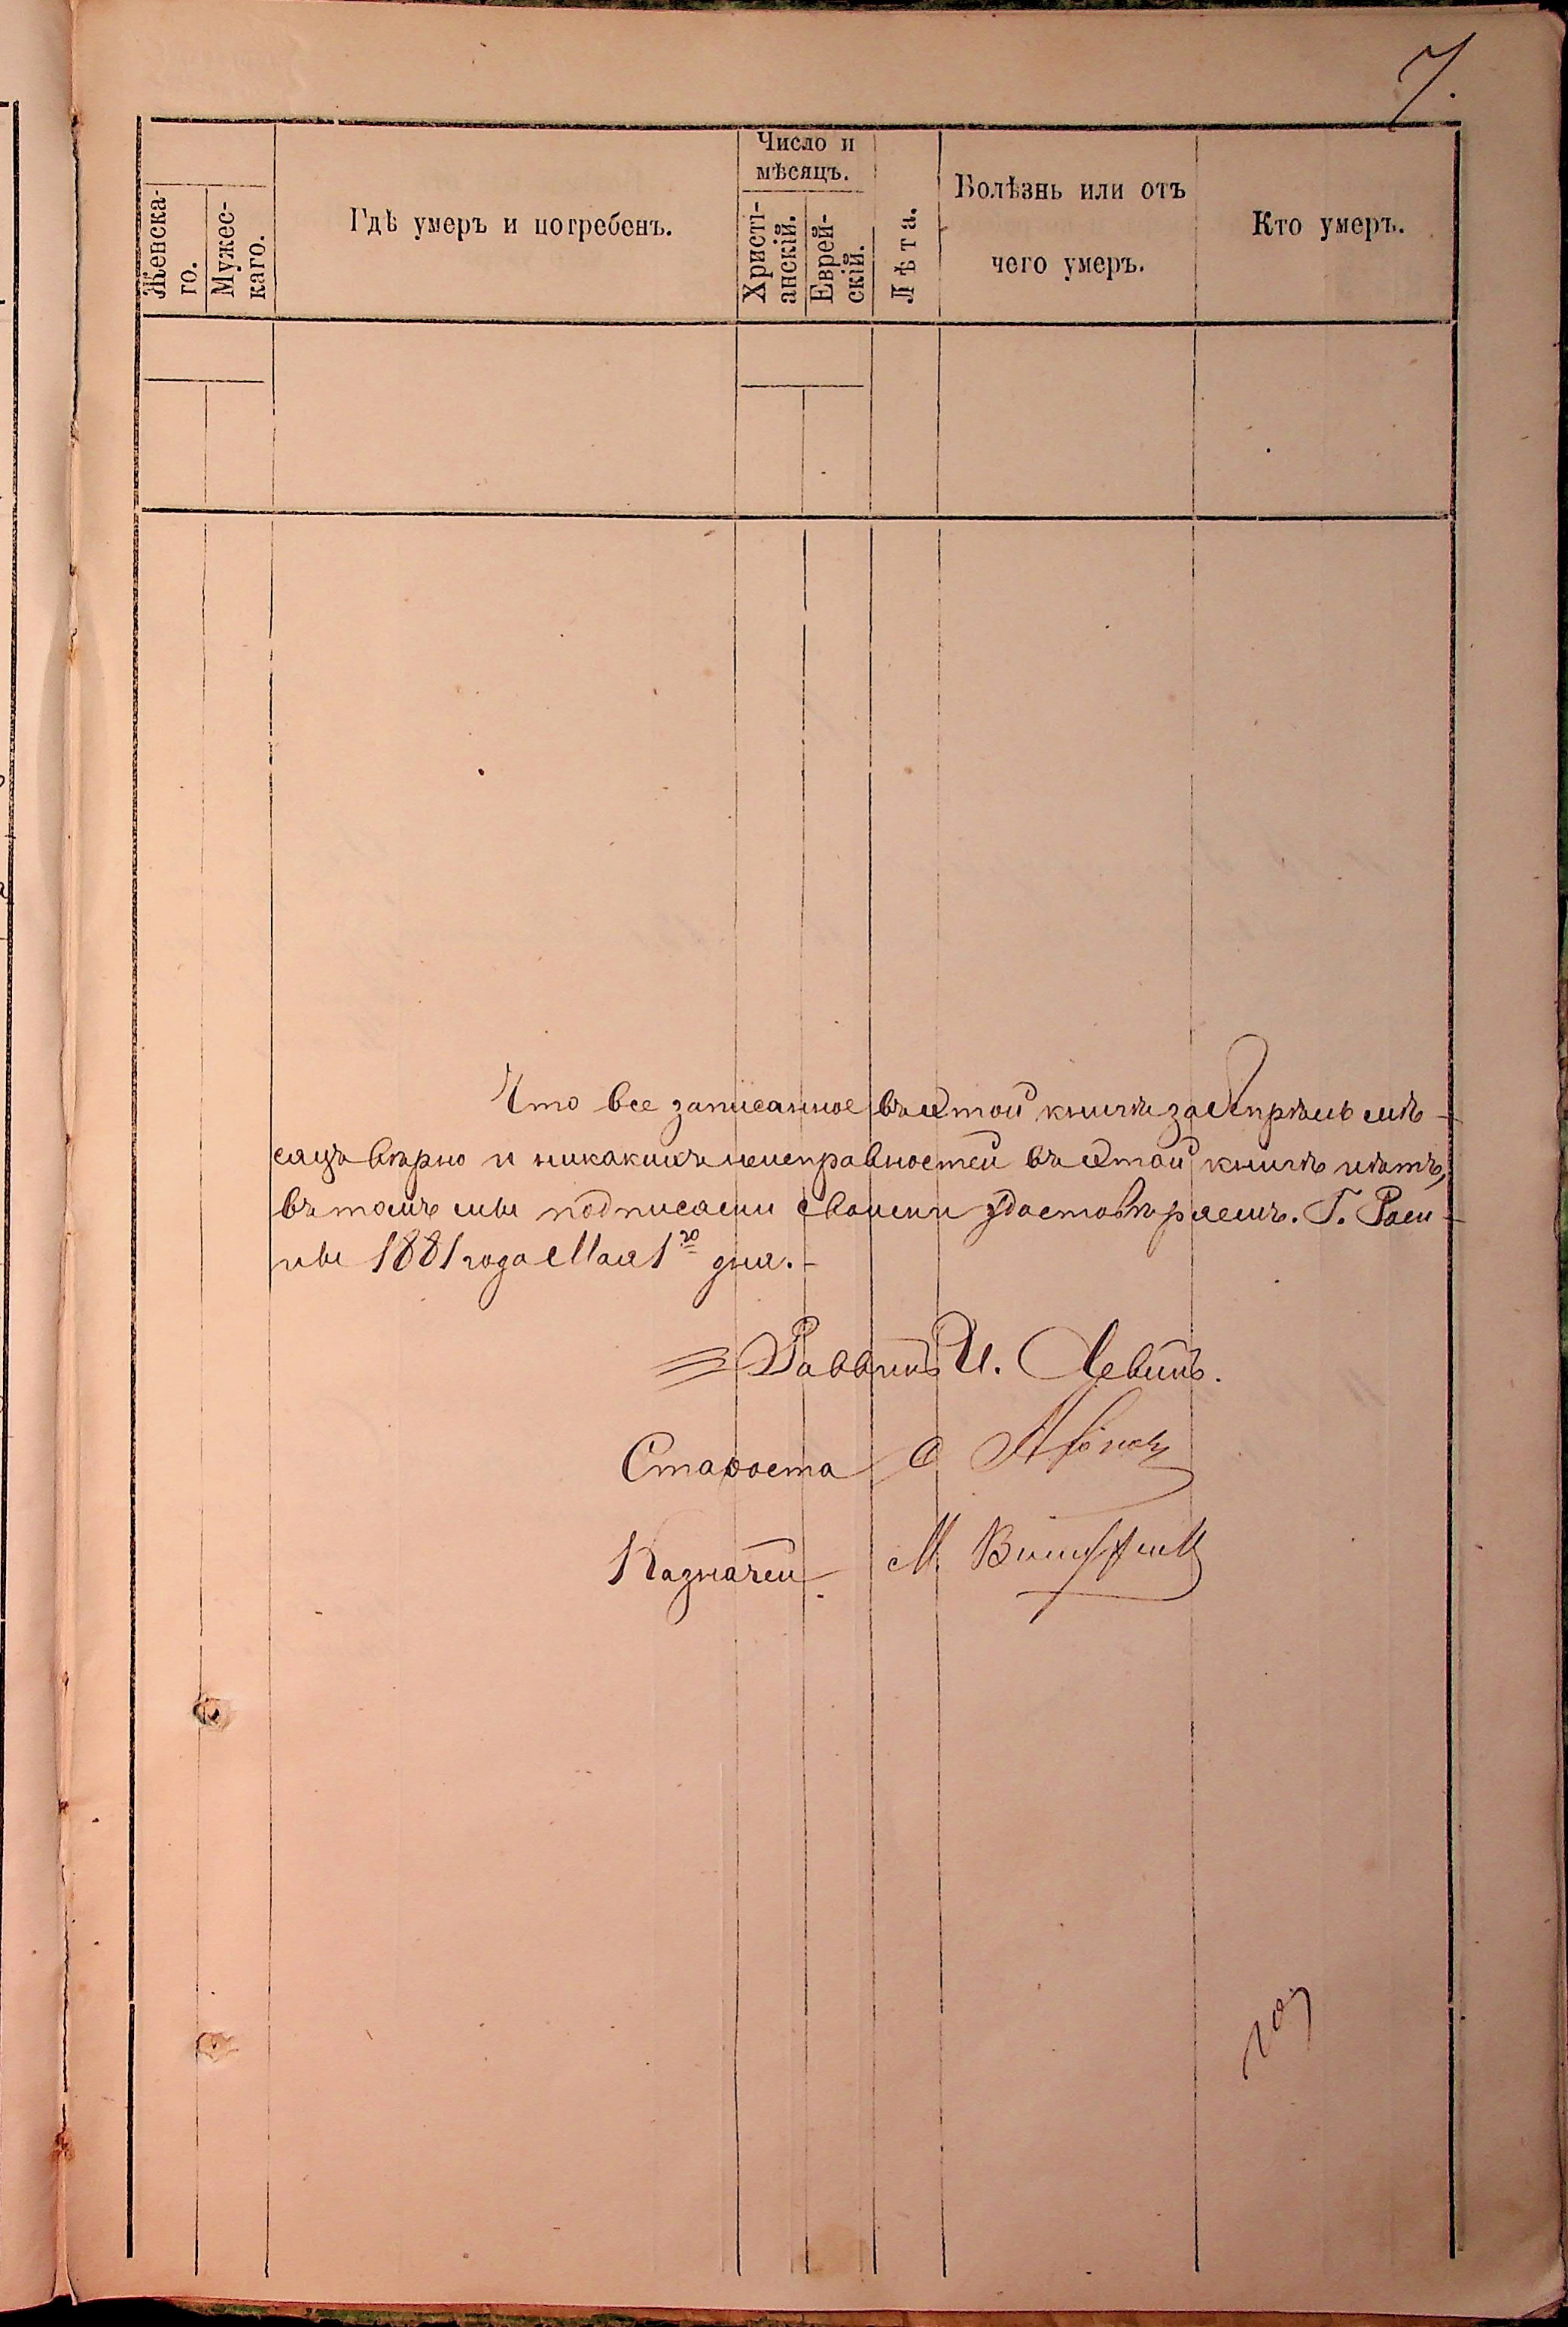 7.
Женска-
го.
Мужес-
каго.
Гдѣ умеръ и погребенъ.
Число и
мѣсяцъ.
Христі-
анскій.
Еврей-
скій.
Лѣта.
Болѣзнь или отъ
чего умеръ.
Кто умеръ.
Что все записанное въ этой книгѣ за Апрѣль мѣ-
сяцъ вѣрно и никакихъ неисправностей въ этой книгѣ нѣтъ,
въ томъ мы подписами своими удостовѣряемъ. Г. Ромн-
ны 1881 года Мая 1го дня.
Раввинъ И. Левинъ.
Староста
Казначей М.